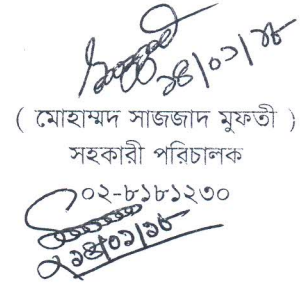 ১৪/০১/১৮
( মোহাম্মদ সাজজাদ মুফতী )
সহকারী পরিচালক
০২-৮১৮১২৩০
১৪/০১/১৮